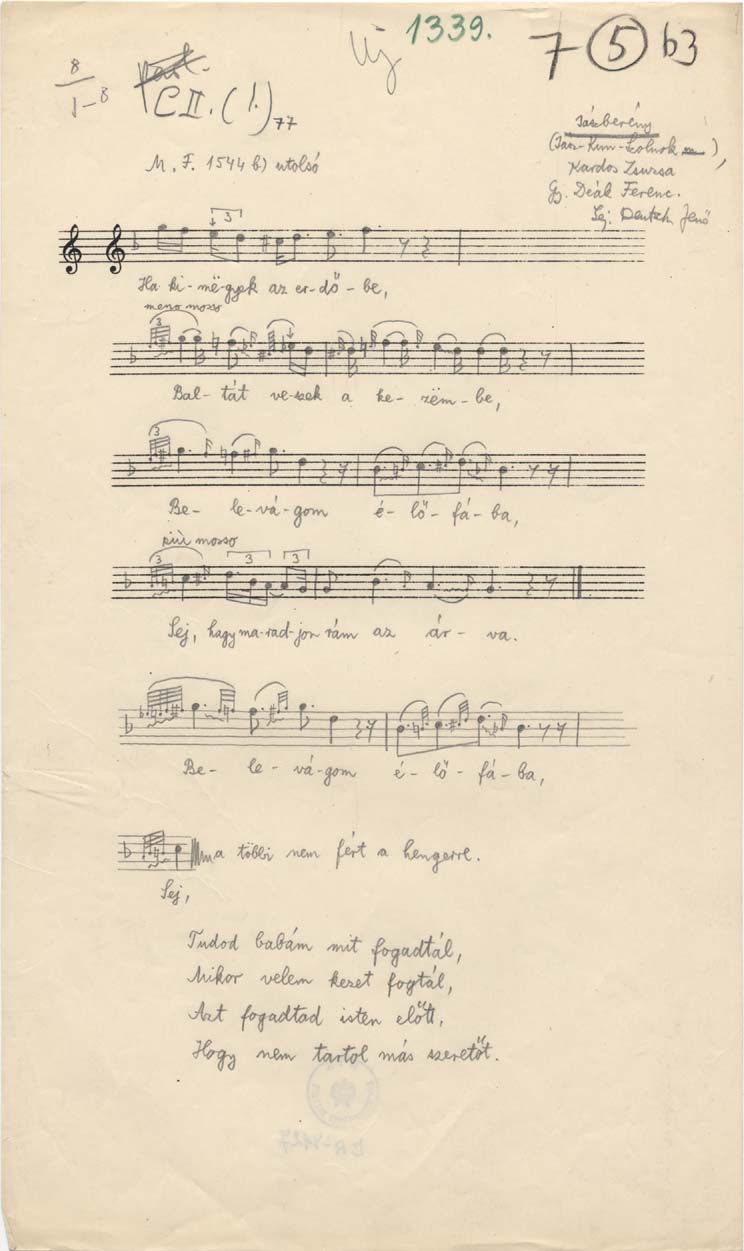 Új 1339. 7 5 b3
8
1-8
C II. (1.) 77
Jászberény
(Jász-Kun-Szolnok),
M. F. 1544 b) utolsó
Kardos Zsuzsa
Gy. Deák Ferenc.
Lej: Deutsch Jenő
3
Ha ki-më-gyek az er-dő-be,
meno mosso
3
Bal-tát ve-szek a ke-zëm-be,
3
Be-le-vá-gom é-lő-fá-ba,
più mosso
3 3 3
Sej, hagy ma-rad-jon rám az ár-va.
Be-le-vá-gom é-lő-fá-ba,
a többi nem fért a hengerre.
Sej,
Tudod babám mit fogadtál,
Mikor velem kezet fogtál,
Azt fogadtad isten előtt,
Hogy nem tartol más szeretőt.